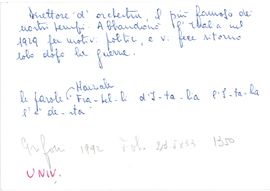 Direttore d'orchestra, il più famoso dei
nostri tempi. Abbandonò l'Italia nel
1929 per motivi politici, e vi fece ritorno
solo dopo la guerra.
Mameli
le parole: Fra-tel-li d'I-ta-lia l'I-ta-lia
s'è de-sta
1992 1350
UNIV.